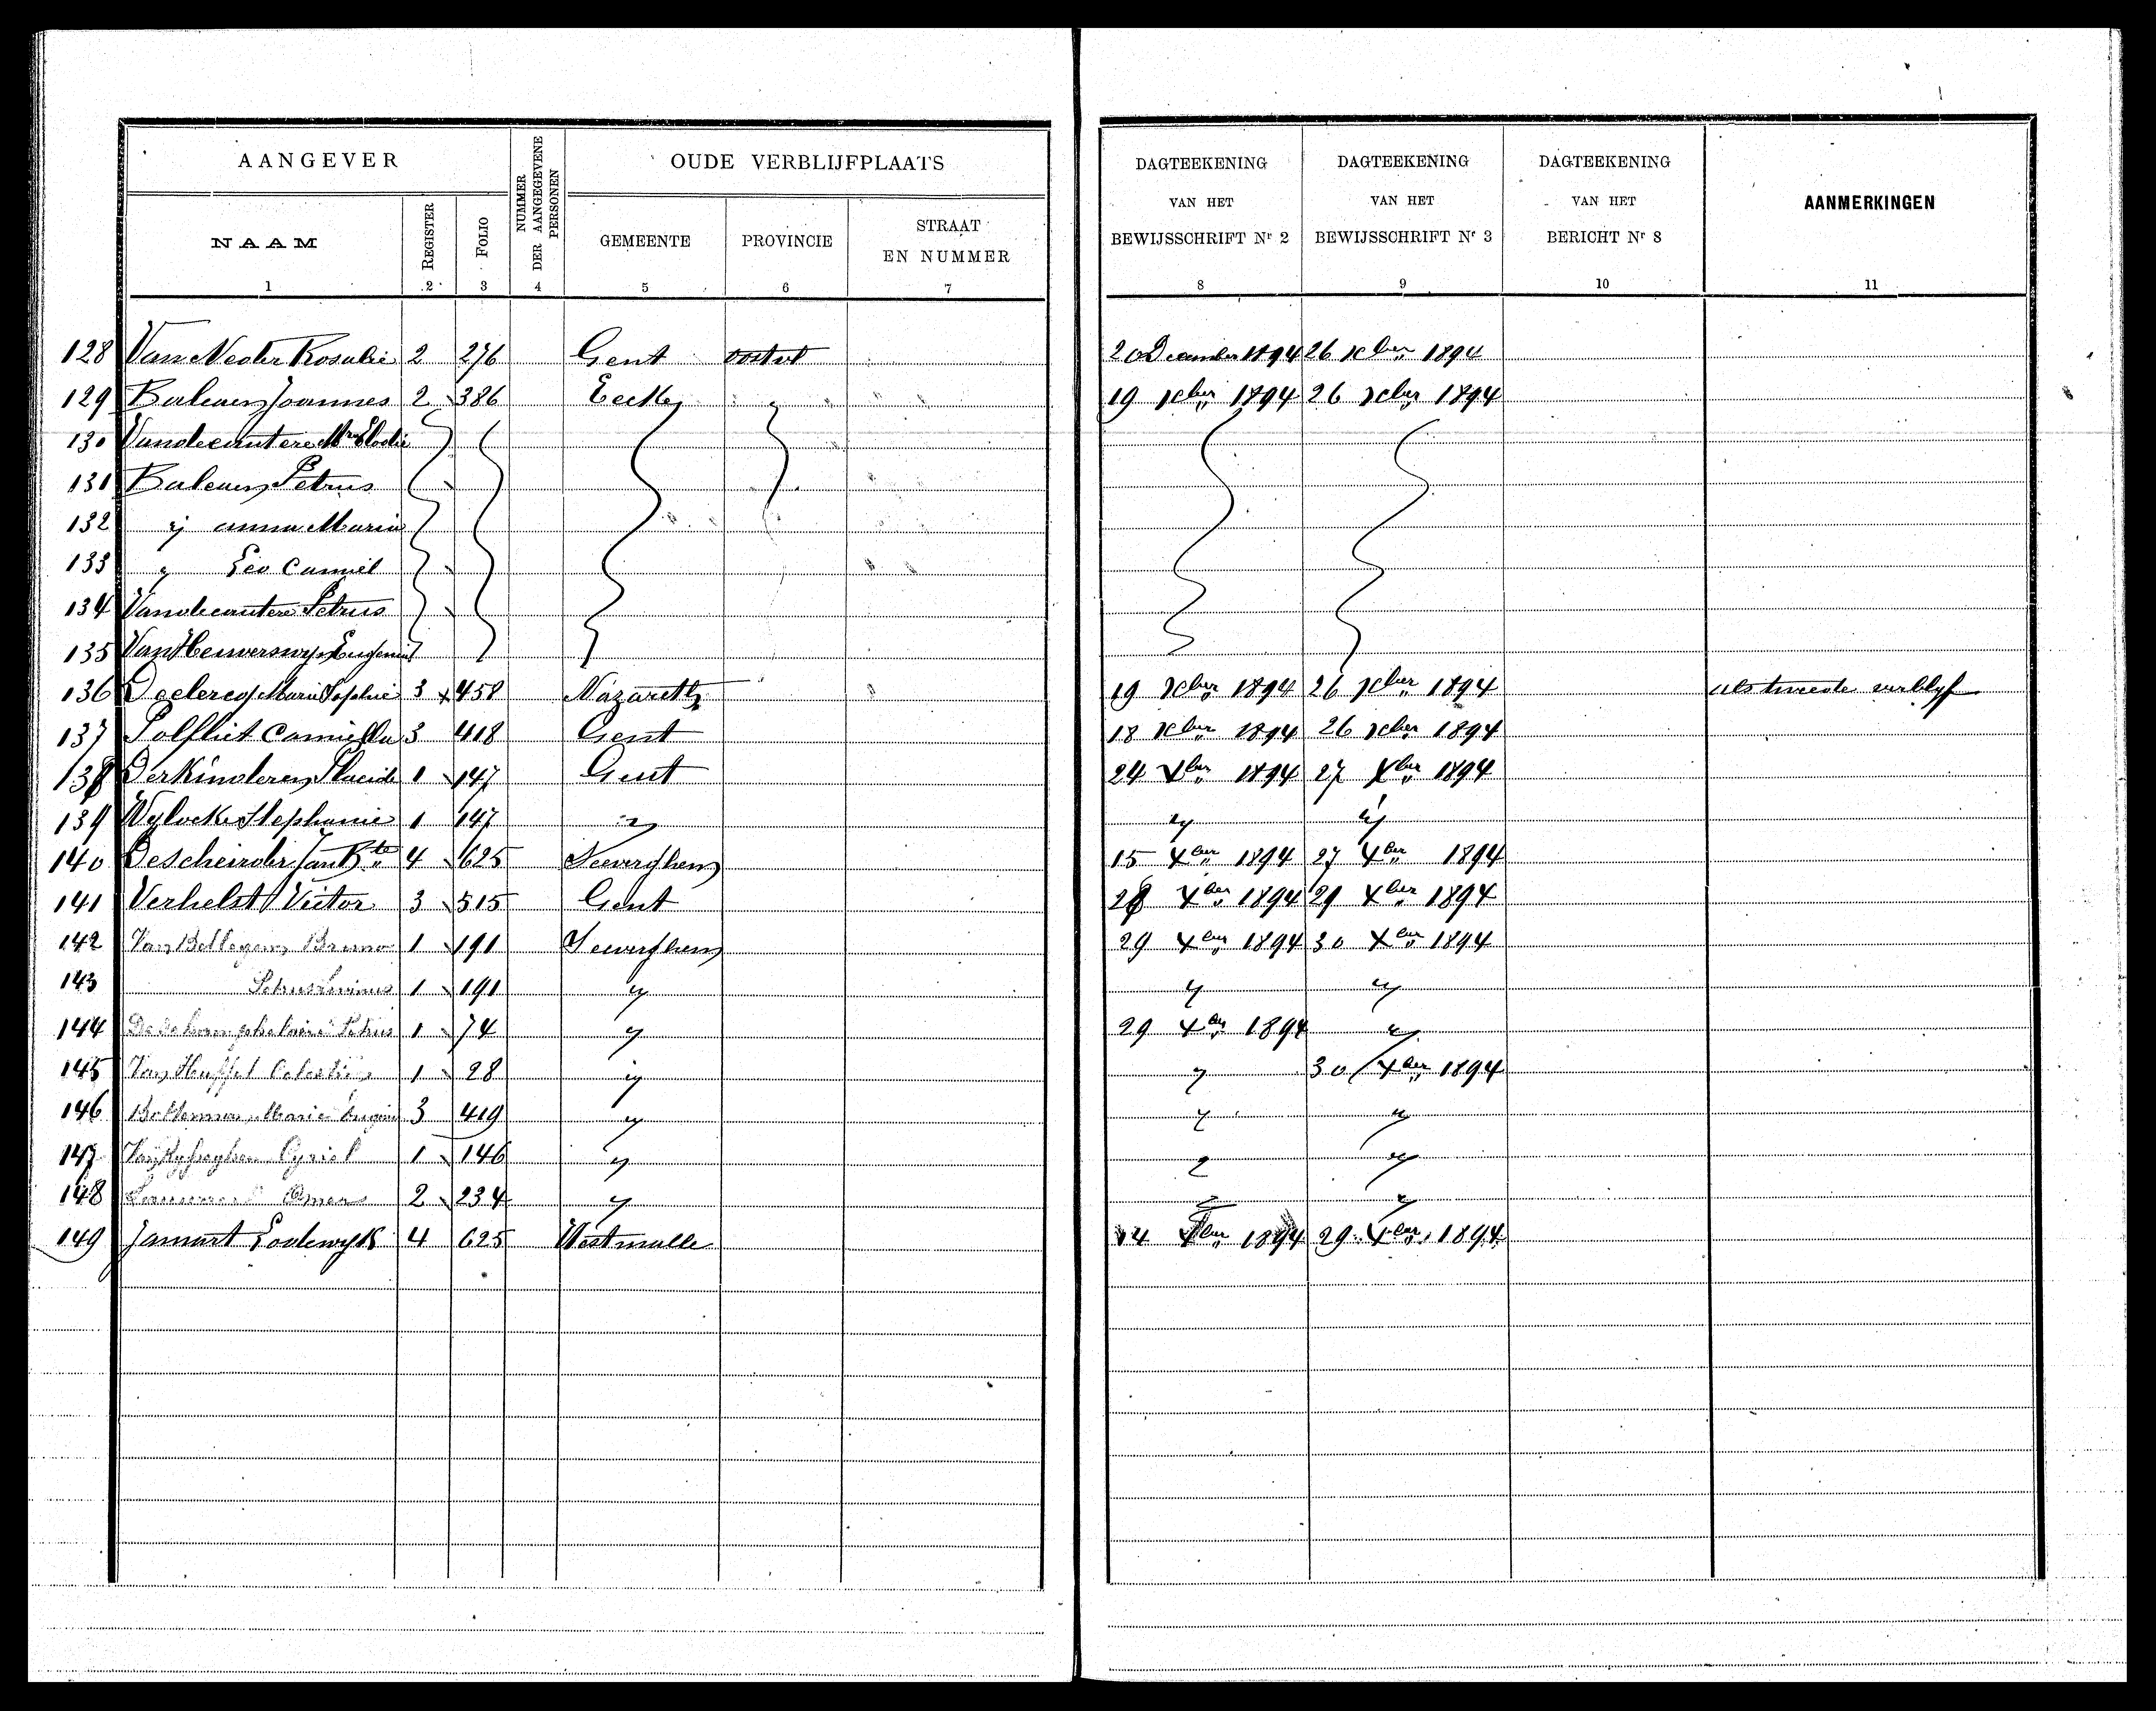 AANGEVER
NUMMER DER AANGEGEVENE PERSONEN
OUDE VERBLIJFPLAATS
DAGTEEKENING VAN HET BEWIJSSCHRIFT Nr 2
DAGTEEKENING VAN HET BEWIJSSCHRIFT Nr 3
DAGTEEKENING VAN HET BERICHT Nr 8
AANMERKINGEN
NAAM
REGISTER
FOLIO
GEMEENTE
PROVINCIE
STRAAT EN NUMMER
1 2 3 4 5 6 7 8 9 10 11
128 Van Rosalie 2 276 Gent oostvl 20 December 1894 26 xber 1894
129 Joannes 2 386 Eecke 19 xber 1894 26 xber 1894
130 Vandecautere Elodie
131 Petrus
132 anna Maria
133 Leo Camiel
134 Vandecautere Petrus
135 Van Heuverswyn Eugenie
136 Declercq Marie Sophie 3 458 Nazareth 19 xber 1894 26 xber 1894 als tweede verblyf
137 Polfliet Camilla 3 418 Gent 18 xber 1894 26 xber 1894
138 DerKinderen Placide 1 147 Gent 24 Xber 1894 27 Xber 1894
139 Wylocke Stephanie 1 147 " " "
140 Descheirder Jan Bte 4 625 Seeverghem 15 Xber 1894 27 Xber 1894
141 Verhelst Victor 3 515 Gent 28 Xber 1894 29 Xber 1894
142 Van Bellegem Bruno 1 191 Seeverghem 29 Xber 1894 30 Xber 1894
143 Petrus Livinus 1 191 " " "
144 Petrus 1 74 " 29 Xber 1894 "
145 Van Huffel Celestin 1 28 " " 30 Xber 1894
146 Marie Eugenie 3 419 " " "
147 Cyriel 1 146 " " "
148 Omer 2 234 " " "
149 Jamart Lodewyk 4 625 Westmalle 14 Xber 1894 29 Xber 1894